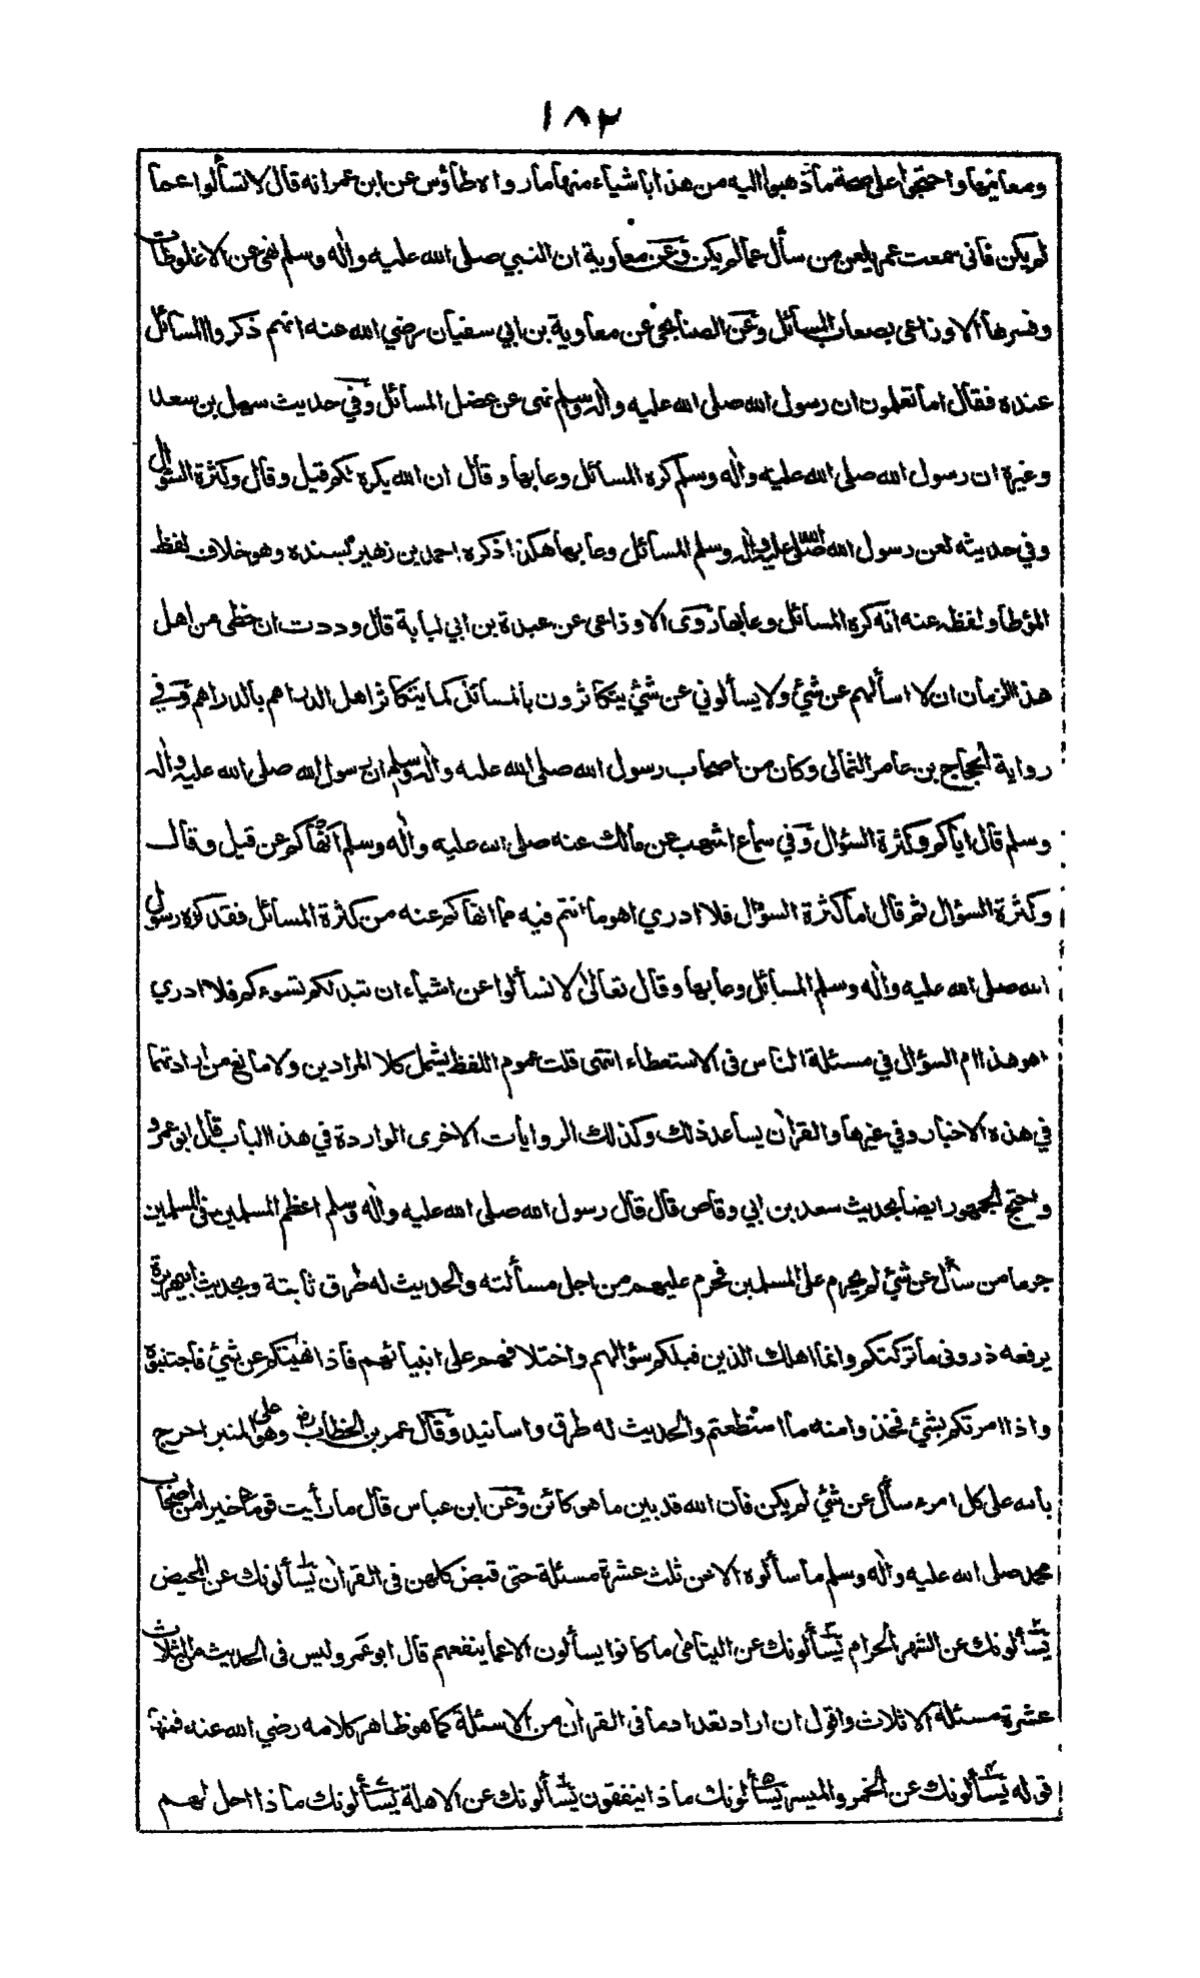 ١٨٢
ومعانيها واحتجوا على صحة ما ذهبوا اليه من هذا باشياء منها ما رواه طاؤس عن ابن عمر انه قال لا تسألوا عما
لم يكن فاني سمعت عمر يلعن من سأل عما لم يكن وعن معاوية ان النبي صلى الله عليه واٰله وسلم نهى عن الاغلوطات
وفسرها الاوزاعى بصعاب المسائل وعن الصنابحي عن معاوية بن ابي سفيان رضي الله عنه انهم ذكروا المسائل
عنده فقال اما تعلمون ان رسول الله صلى الله عليه واٰله وسلم نهى عن عضل المسائل وفي حديث سهل بن سعد
وغيرة ان رسول الله صلى الله عليه واٰله وسلم كره المسائل وعابها وقال ان الله يكره لكم قيل وقال وكثرة السؤال
وفي حديثه لعن رسول الله صلى الله عليه واٰله وسلم المسائل وعابها هكذا ذكره احمد بن زهير بسنده وهو خلاف لفظ
المؤطا ولفظه عنه انه كره المسائل وعابها روى الاوزاعى عن عبدة بن ابي لبابة قال وددت ان حظى من اهل
هذا الزمان ان لا اسألهم عن شئ ولا يسألوني عن شئ يتكاثرون بالمسائل كما يتكاثر اهل الدراهم بالدراهم وفي
رواية الحجاج بن عامر الثمالى وكان من اصحاب رسول الله صلى الله عليه واٰله وسلم ان رسول الله صلى الله عليه واٰله
وسلم قال اياكم وكثرة السؤال وفي سماع اشهب عن مالك عنه صلى الله عليه واٰله وسلم انهٰاكم عن قيل وقال
وكثرة السؤال ثم قال اما كثرة السؤال فلا ادري اهو ما انتم فيه مما انهاكم عنه من كثرة المسائل فقد كره رسول
الله صلى الله عليه واٰله وسلم المسائل وعابها وقال تعالىٰ لا تسألوا عن اشياء ان تبد لكم تسوءكم فلا ادري
اهو هذا ام السؤال في مسئلة الناس فى الاستعطاء انتهى قلت عموم اللفظ يشمل كلا المرادين ولا مانع من ارادتهما
في هذه الاخبار وفي غيرها والقراٰن يساعد ذلك وكذلك الروايات الاخرى الواردة في هذا الباب قال ابو عمرو
واحتج الجمهور ايضا بحديث سعد بن ابي وقاص قال قال رسول الله صلى الله عليه واٰله وسلم اعظم المسلمين فى المسلمين
جرما من سأل عن شئ لم يحرم على المسلمين فحرم عليهم من اجل مسألته والحديث له طرق ثابتة وبحديث ابيهريرة
يرفعه ذرونى ما تركتكم وانما اهلك الذين قبلكم سؤالهم واختلافهم على انبيائهم فاذا نهيتكم عن شئ فاجتنبوة
واذا امرتكم بشئ فخذوا منه ما استطعتم والحديث له طرق واسانيد وقال عمر بن الخطاب رض وهو على المنبر احرج
بالله على كل امرء سأل عن شئ لم يكن فان الله قد بين ما هو كائن وعن ابن عباس قال ما رأيت قوما خيرا من اصحاب
محمد صلى الله عليه واٰله وسلم ما سألوه الا عن ثلث عشرة مسئلة حتى قبض كلهن فى القراٰن يسألونك عن المحيض
يسألونك عن الشهر الحرام يسألونك عن اليتامىٰ ما كانوا يسألون الا عما ينفعهم قال ابو عمر وليس فى الحديث من الثلاث
عشرة مسئلة الا ثلاث واقول ان اراد تعداد ما فى القراٰن من الاسئلة كما هو ظاهر كلامه رضي الله عنه فمنها
قوله يسألونك عن الخمر والميسر يسألونك ماذا ينفقون يسألونك عن الاهلة يسألونك ماذا احل لهم